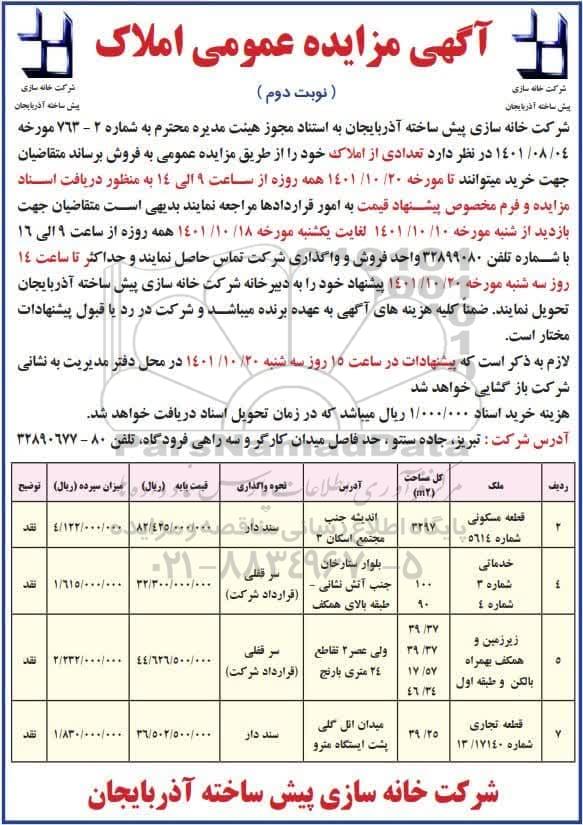 آگهی مزایده عمومی املاک
( نوبت دوم )
شرکت خانه سازی
پیش ساخته آذربایجان
شرکت خانه سازی
پیش ساخته آذربایجان
شرکت خانه سازی پیش ساخته آذربایجان به استناد مجوز هیئت مدیره محترم به شماره ۲ - ۷۶۳ مورخه
۰۴ /۰۸ /۱۴۰۱ در نظر دارد تعدادی از املاک خود را از طریق مزایده عمومی به فروش برساند متقاضیان
جهت خرید میتوانند تا مورخه ۲۰ /۱۰ /۱۴۰۱ همه روزه از ساعت ۹ الی ۱۴ به منظور دریافت اسناد
مزایده و فرم مخصوص پیشنهاد قیمت به امور قراردادها مراجعه نمایند بدیهی است متقاضیان جهت
بازدید از شنبه مورخه ۱۰ /۱۰ /۱۴۰۱ لغایت یکشنبه مورخه ۱۸ /۱۰ /۱۴۰۱ همه روزه از ساعت ۹ الی ۱۶
با شماره تلفن ۳۲۸۹۹۰۸۰ واحد فروش و واگذاری شرکت تماس حاصل نمایند و حداکثر تا ساعت ۱۴
روز سه شنبه مورخه ۲۰ /۱۰ /۱۴۰۱ پیشنهاد خود را به دبیرخانه شرکت خانه سازی پیش ساخته آذربایجان
تحویل نمایند. ضمنا کلیه هزینه های آگهی به عهده برنده میباشد و شرکت در رد یا قبول پیشنهادات
مختار است.
لازم به ذکر است که پیشنهادات در ساعت ۱۵ روز سه شنبه ۲۰ /۱۰ /۱۴۰۱ در محل دفتر مدیریت به نشانی
شرکت باز گشایی خواهد شد
هزینه خرید اسناد ۱/۰۰۰/۰۰۰ ریال میباشد که در زمان تحویل اسناد دریافت خواهد شد.
آدرس شرکت : تبریز، جاده سنتو ، حد فاصل میدان کارگر و سه راهی فرودگاه، تلفن ۸۰ - ۳۲۸۹۰۶۷۷
ردیف ملک کل مساحت (m۲) آدرس نحوه واگذاری قیمت پایه (ریال) میزان سپرده (ریال) توضیح
۲ قطعه مسکونی شماره ۵۶۱۴ ۳۲۹۷ اندیشه جنب مجتمع اسکان ۳ سند دار ۸۲/۴۳۵/۰۰۰/۰۰۰ ۴/۱۲۲/۰۰۰/۰۰۰ نقد
۴ خدماتی شماره ۳ شماره ۴ ۱۰۰ ۹۰ بلوار ستارخان جنب آتش نشانی - طبقه بالای همکف سر قفلی (قرارداد شرکت) ۳۲/۳۰۰/۰۰۰/۰۰۰ ۱/۶۱۵/۰۰۰/۰۰۰ نقد
۵ زیرزمین و همکف بهمراه بالکن و طبقه اول ۳۷/ ۳۹ ۳۷/ ۳۹ ۵۷/ ۱۷ ۳۴/ ۴۶ ولی عصر۲ تقاطع ۲۴ متری بارنج سر قفلی (قرارداد شرکت) ۴۴/۶۲۶/۵۰۰/۰۰۰ ۲/۲۳۲/۰۰۰/۰۰۰ نقد
۷ قطعه تجاری شماره ۱۷۱۴۰/ ۱۳ ۲۵/ ۳۹ میدان ائل گلی پشت ایستگاه مترو سند دار ۳۶/۵۰۲/۵۰۰/۰۰۰ ۱/۸۳۰/۰۰۰/۰۰۰ نقد
شرکت خانه سازی پیش ساخته آذربایجان
ParsNamadData
پایگاه اطلاع رسانی مناقصه و مزایده
۰۲۱-۸۸۳۴۹۶۷۰-۵